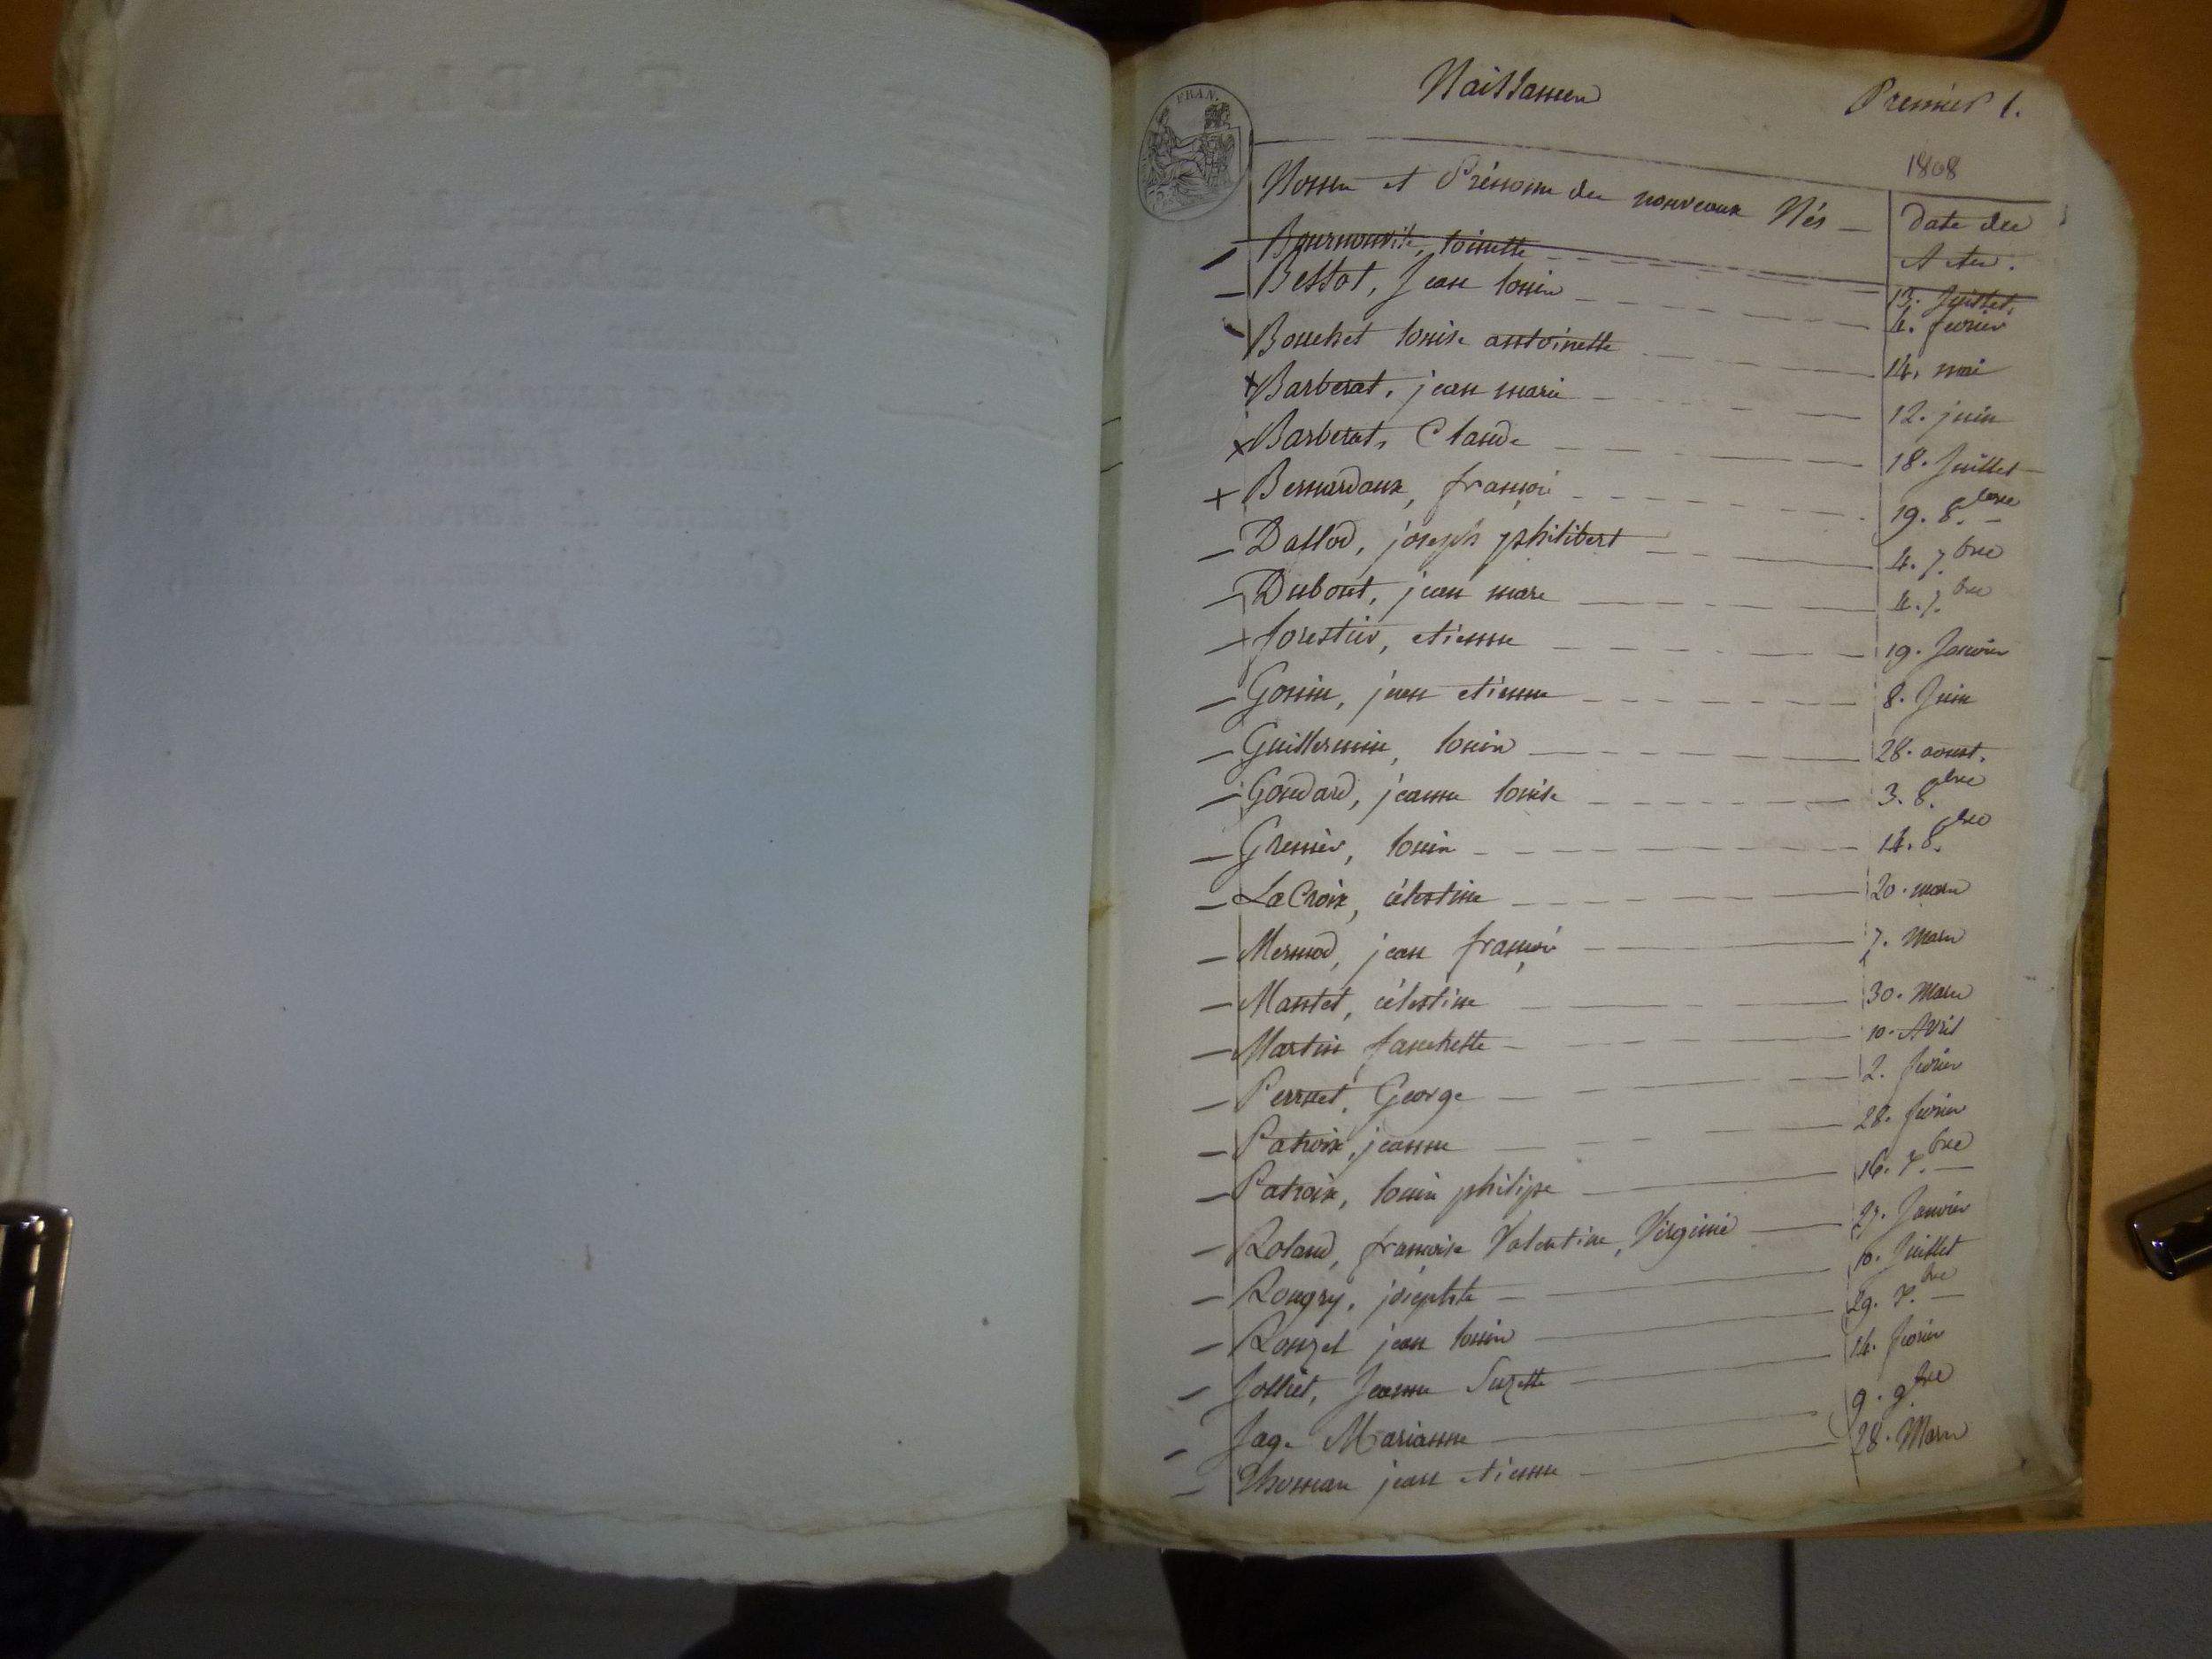 FRAN.
Naissances
Premier 1.
1808
Noms et Prénoms des nouveaux Nés — Date des
Actes.
Bournonville, toinette 13. Juillet
Bessat, Jean louis 4. fevrier
Bouchet louise antoinette 14. mai
Barberat, jean marie 12. juin
Barberat, Claude 18. Juillet
Bernardaux, françois 19. 8.bre
Daflod, joseph philibert 4. 7.bre
Dubout, jean marc 4. 7.bre
forestier, etienne 19. Janvier
Gonin, jean etienne 8. Juin
Guillermin, louis 28. aoust.
Goudard, jeanne louise 3. 8.bre
Grenier, louis 14. 8.bre
LaCroix, célestine 20. mars
Mermod, jean françois 7. Mars
Mantet, célestine 30. Mars
Martin fanchette 10. Avril
Perruet, George 2. fevrier
Patroix, jeanne 28. fevrier
Patroix, louis philipe 16. 7.bre
Roland, françoise Valentine, Virginie 27. Janvier
Rougry, josephte 10. Juillet
Rouzet jean louis 29. 7.bre
Jolliet, Jeanne Suzette 14. fevrier
Jage Marianne 9. 9.bre
Thomas jean etienne 28. Mars